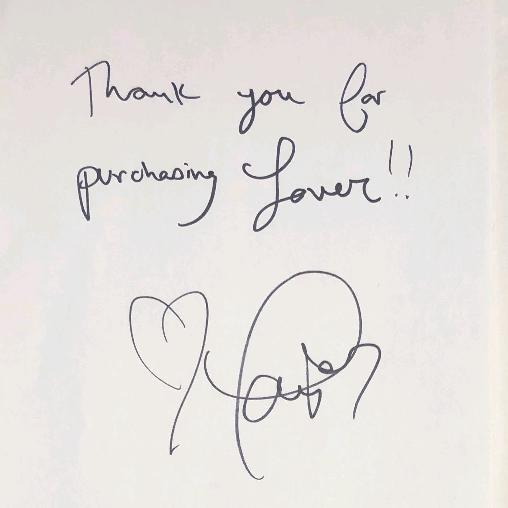 Thank you for
purchasing Lover!!
Taylor